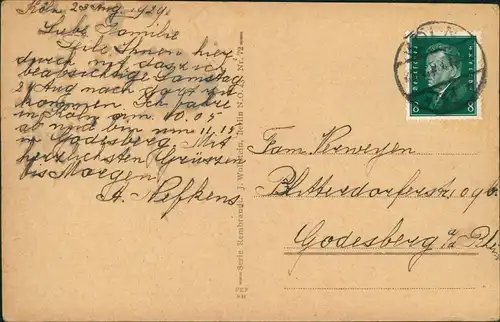 Köln 23 Aug. 1929.
Liebe Familie
Teile Ihnen hier
durch mit das ich
beabsichtige Samstag
24 Aug nach dort zu
kommen. Ich fahre
in Köln um 10.05
ab und bin um 11,15
in Godesberg. Mit
herzlichsten Grüssen
bis Morgen
A. Nefkens
Serie Rembrandt. J. Wollstein, Berlin N.O. Nr. 72
PKF
KH
DEUTSCHES REICH
8 8
Fam. Verweyen
Godesberg a/d Rhein